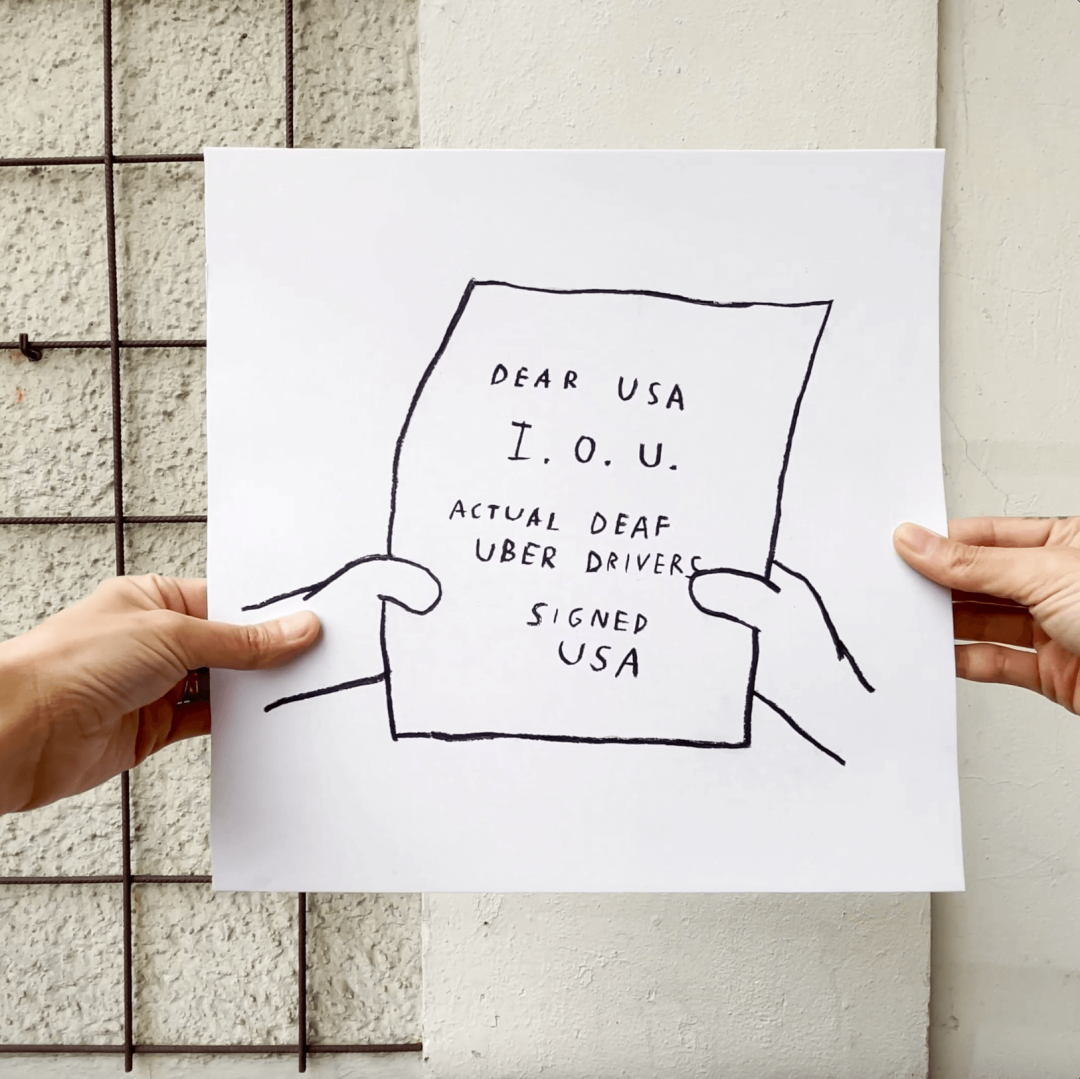 DEAR USA
I. O. U.
ACTUAL DEAF
UBER DRIVERS
SIGNED
USA